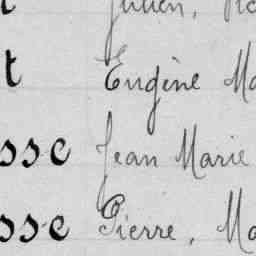 Julien,
t Eugène Ma
sse Jean Marie
sse Pierre, Ma